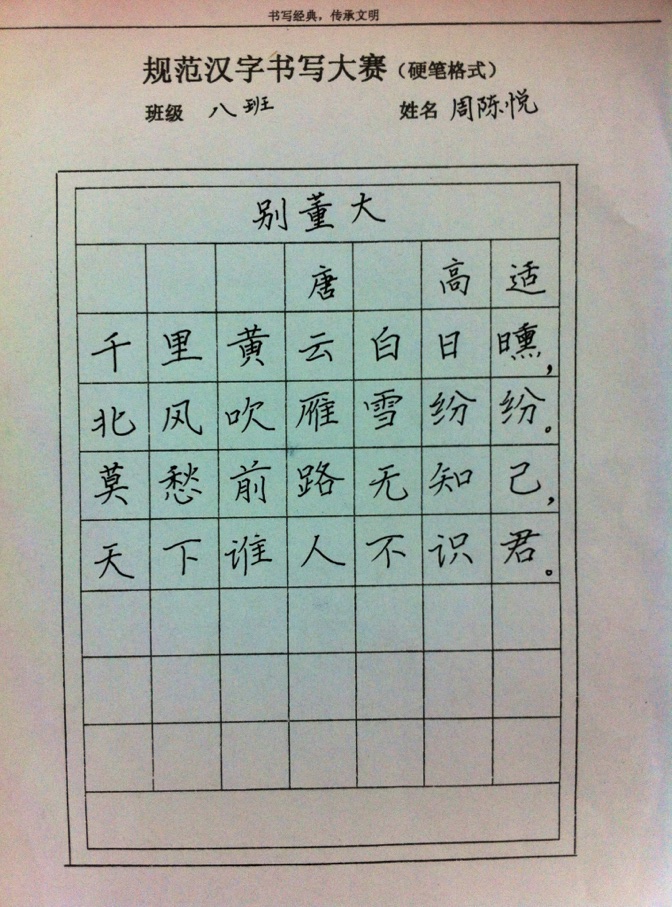 书写经典，传承文明
规范汉字书写大赛（硬笔格式）
班级 八班 姓名 周陈悦
别董大
唐 高适
千里黄云白日曛，
北风吹雁雪纷纷。
莫愁前路无知己，
天下谁人不识君。